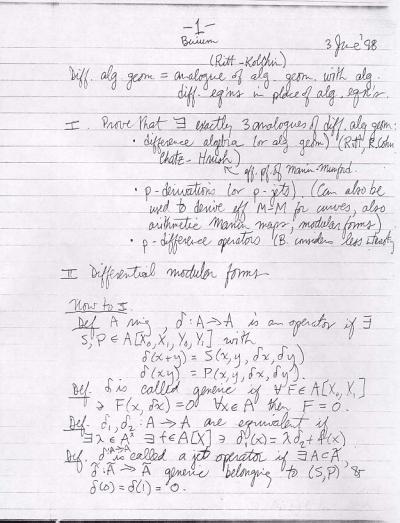 -1-
Buium
3 June '98
(Ritt-Kolchin)
Diff. alg. geom = analogue of alg. geom. with alg.
diff. eq'ns in place of alg. eq'ns.
I. Prove that ∃ exactly 3 analogues of diff. alg geom:
• difference algebra (or alg geom) (Ritt, R. Cohn
Chatz-Hrush)
↖ eff. pf. of Manin-Mumford.
• p-derivations (or p-jets). (Can also be
used to derive eff M-M for curves, also
arithmetic Manin maps, modular forms)
• p-difference operators (B. considers less
II Differential modular forms
How to I.
Def A ring, δ: A → A is an operator if ∃
S, P ∈ A[X₀, X₁, Y₀, Y₁] with
δ(x+y) = S(x, y, δx, δy)
δ(xy) = P(x, y, δx, δy).
Def. δ is called generic if ∀ F ∈ A[X₀, X₁]
∋ F(x, δx) = 0 ∀x ∈ A then F = 0.
Def. δ₁, δ₂: A → A are equivalent if
∃ λ ∈ Aˣ ∃ f ∈ A[X] ∋ δ₁(x) = λδ₂ + f(x).
Def. δ: A → A is called a jet operator if ∃ A ⊂ Ã,
δ̃: Ã → Ã generic belonging to (S, P), &
δ(0) = δ(1) = 0.